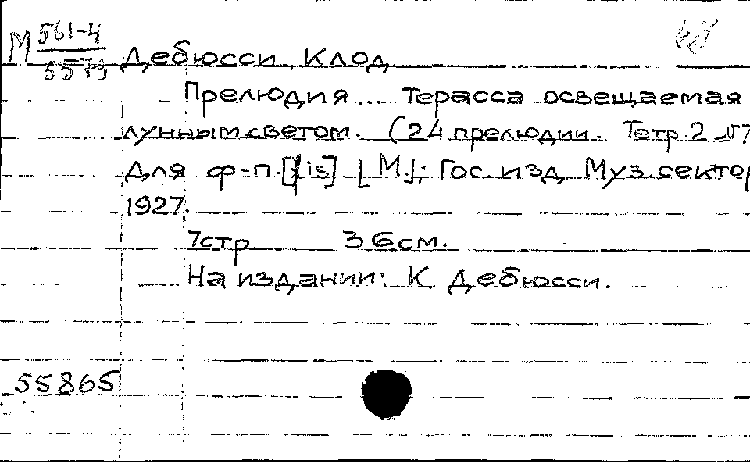 М 561-4
5579 Дебюсси, Клод
Прелюдия... Терасса освещаемая
лунным светом. (24 прелюдии. Тетр. 2 №7
Для ф-п. [fis] [М.]; Гос. изд. Муз. сектор
1927.
7стр 36см.
На издании: К Дебюсси.
55865